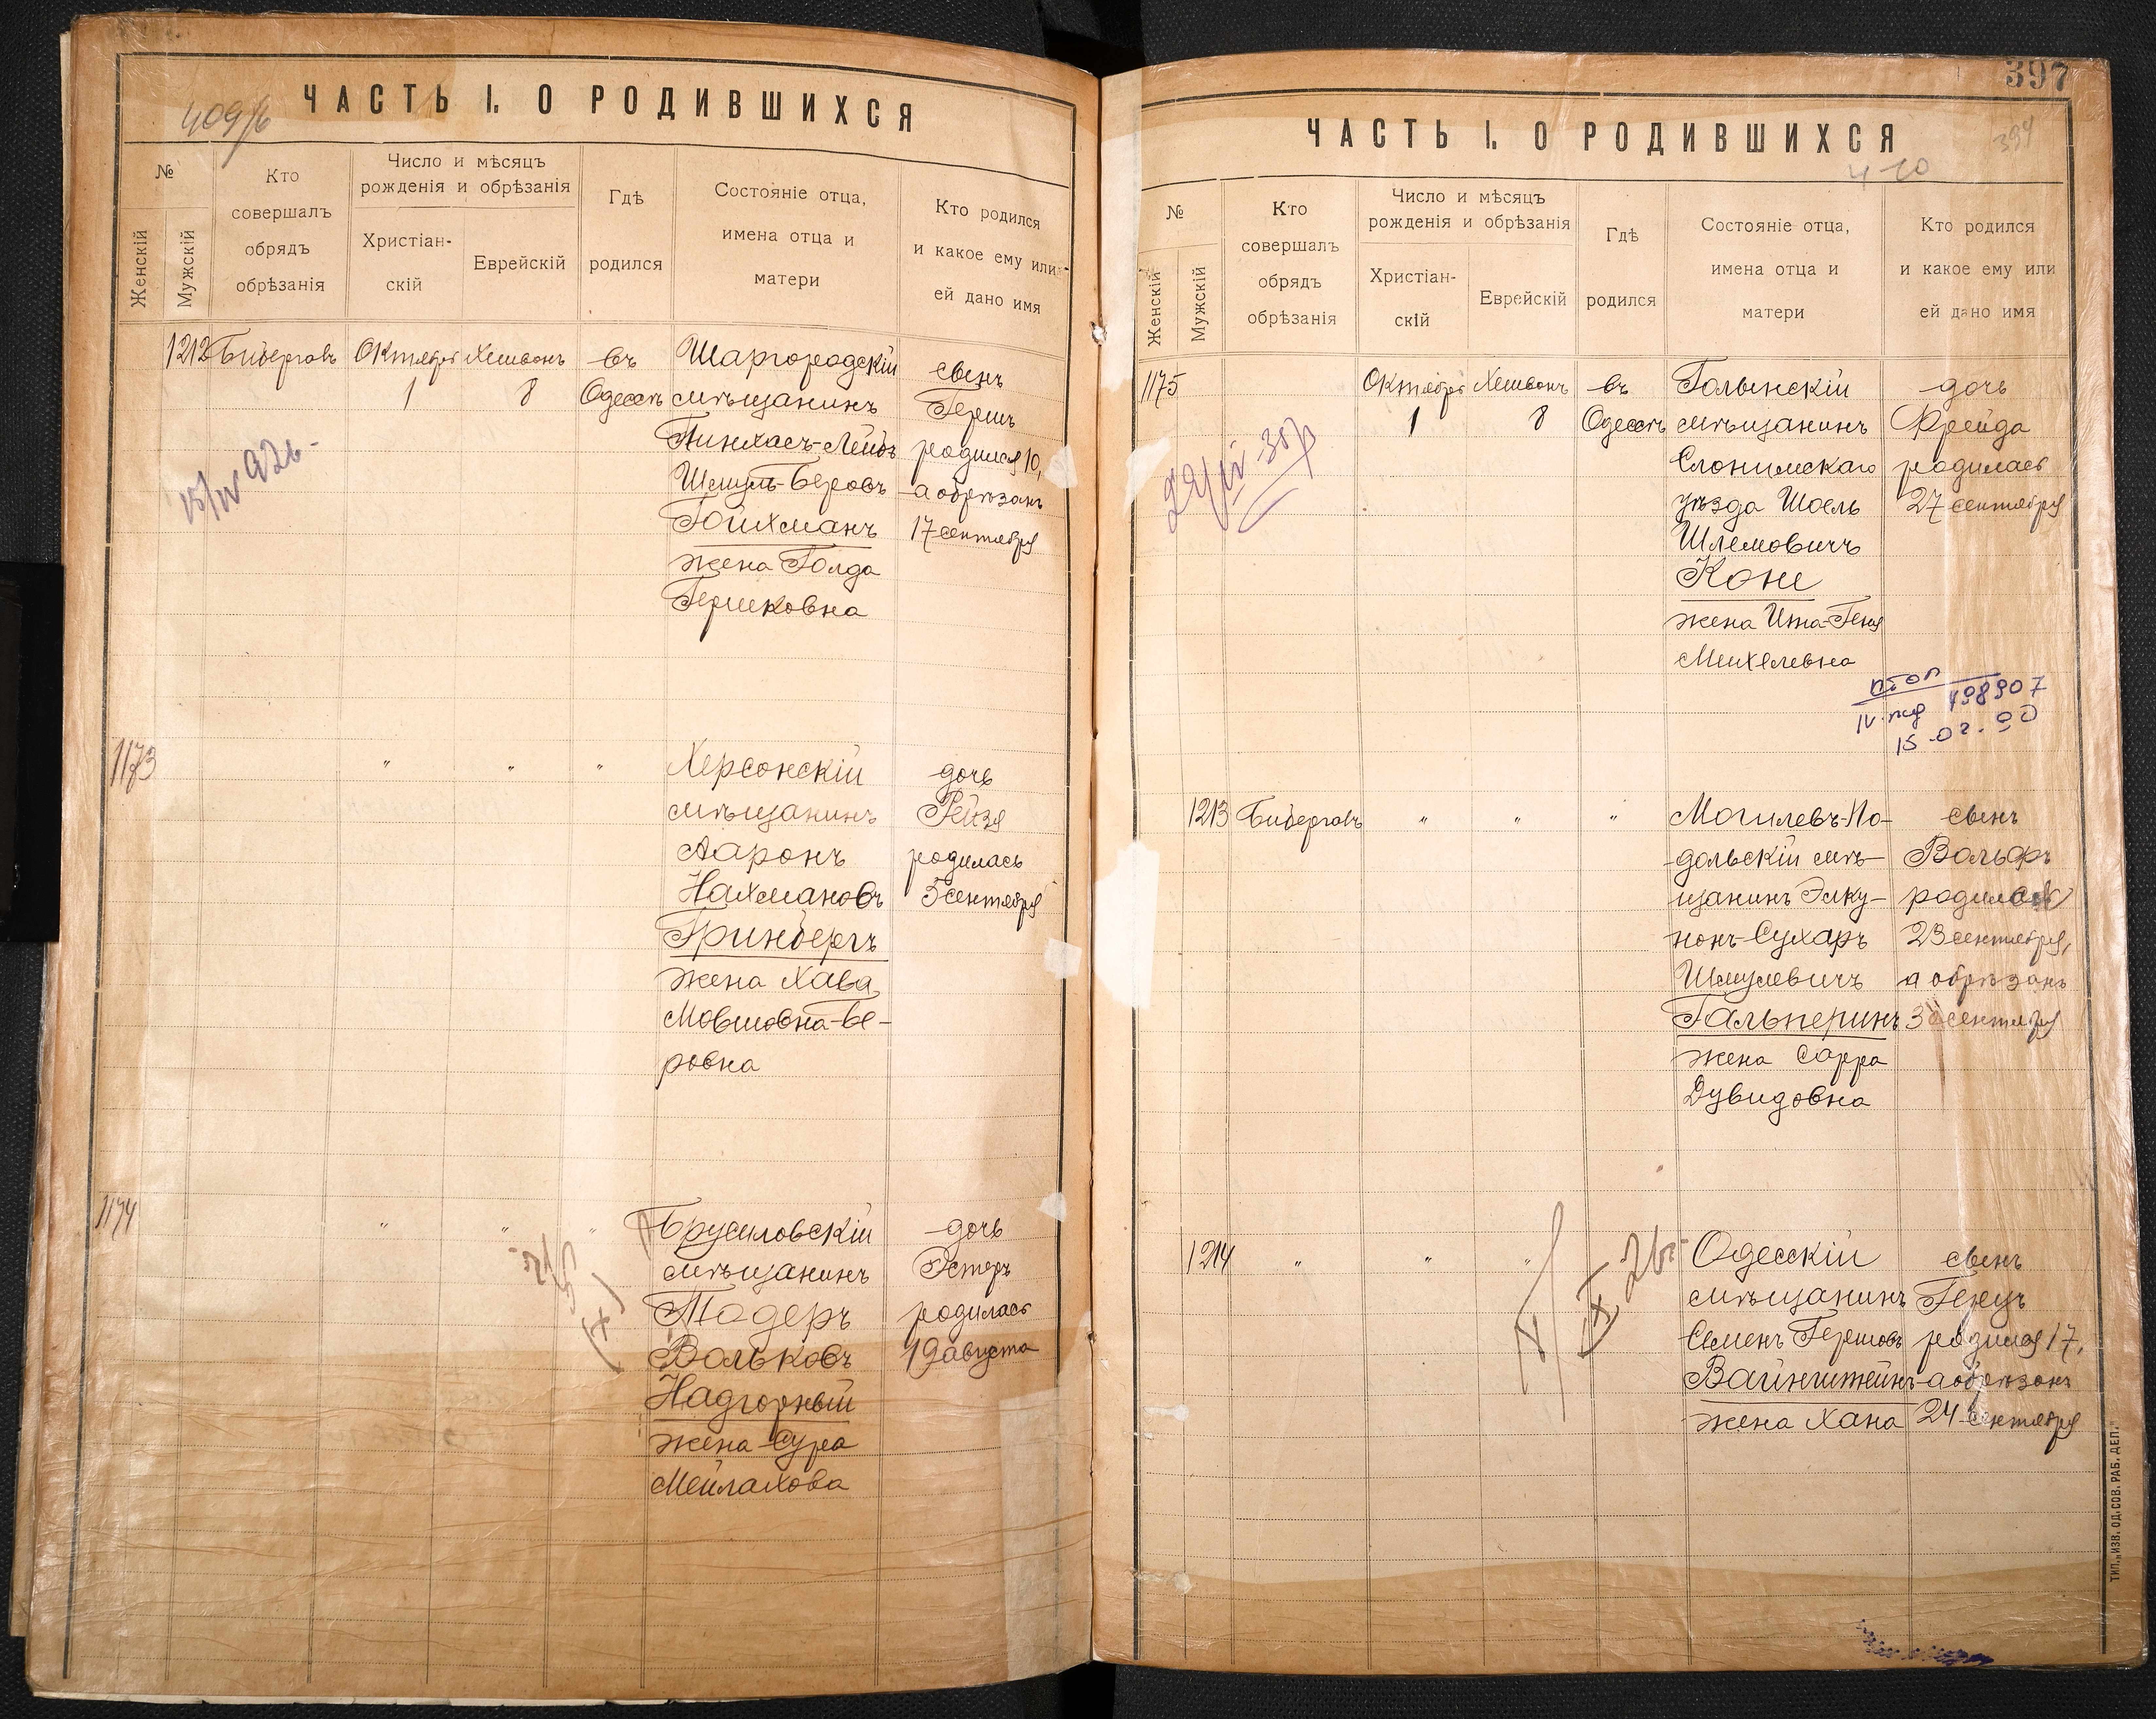 409/б
ЧАСТЬ I. О РОДИВШИХСЯ
№
Женскій
Мужскій
Кто
совершалъ
обрядъ
обрѣзанія
Число и мѣсяцъ
рожденія и обрѣзанія
Христіан-
скій
Еврейскій
Гдѣ
родился
Состояніе отца,
имена отца и
матери
Кто родился
и какое ему или
ей дано имя
1212
Бибергалъ
Октября
1
Хешвонъ
8
въ
Одессѣ
Шаргородскій
мѣщанинъ
Пинхасъ-Лейбъ
Шмуль-Беровъ
Гойхманъ
жена Голда
Гершковна
сынъ
Гершъ
родился 10,
а обрѣзанъ
17 сентября
15/IV 926.
1173
"
"
"
Херсонскій
мѣщанинъ
Ааронъ
Нахмановъ
Гринбергъ
жена Хава
Мовшовна-Бе-
ровна
дочь
Рейзя
родилась
5 сентября
1174
"
"
"
Брусиловскій
мѣщанинъ
Тодеръ
Вольковъ
Надгорный
жена Сура
Мейлахова
дочь
Эстеръ
родилась
19 августа
397
394
ЧАСТЬ I. О РОДИВШИХСЯ
№
Женскій
Мужскій
Кто
совершалъ
обрядъ
обрѣзанія
Число и мѣсяцъ
рожденія и обрѣзанія
Христіан-
скій
Еврейскій
Гдѣ
родился
Состояніе отца,
имена отца и
матери
Кто родился
и какое ему или
ей дано имя
1175
Октября
1
Хешвонъ
8
въ
Одессѣ
Голынскій
мѣщанинъ
Слонимскаго
уѣзда Шоель
Шлемовичъ
Коне
жена Ита-Геня
Михелевна
дочь
Фрейда
родилась
27 сентября
498907
15.02.90
1213
Бибергалъ
"
"
"
Могилевъ-По-
дольскій мѣ-
щанинъ Элку-
нонъ-Сухаръ
Шмулевичъ
Гальперинъ
жена Сарра
Дувидовна
сынъ
Вольфъ
родился
23 сентября,
а обрѣзанъ
30 сентября
1214
"
"
"
Одесскій
мѣщанинъ
Семенъ Гершовъ
Вайнштейнъ
жена Хана
сынъ
Герцъ
родился 17,
а обрѣзанъ
24 сентября
ТИП. „ИЗВ. ОД. СОВ. РАБ. ДЕП."